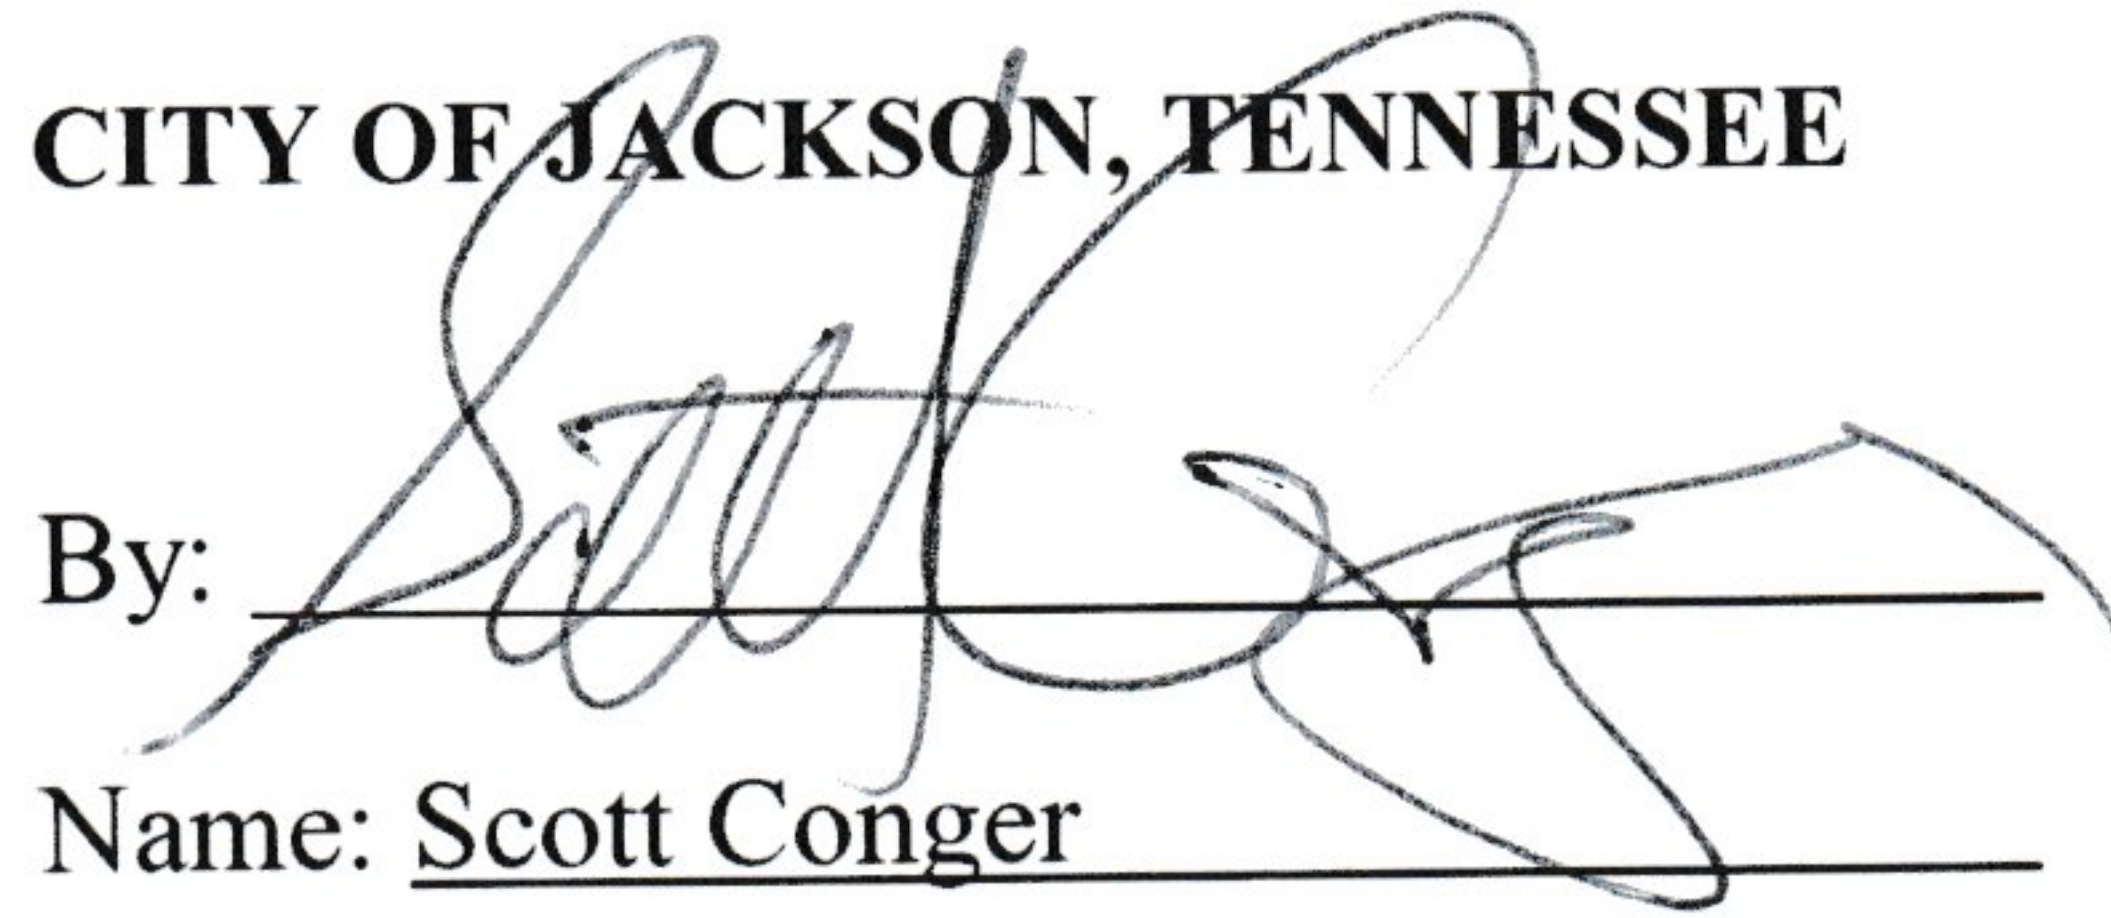 CITY OF JACKSON, TENNESSEE
By: Scott Conger
Name: Scott Conger